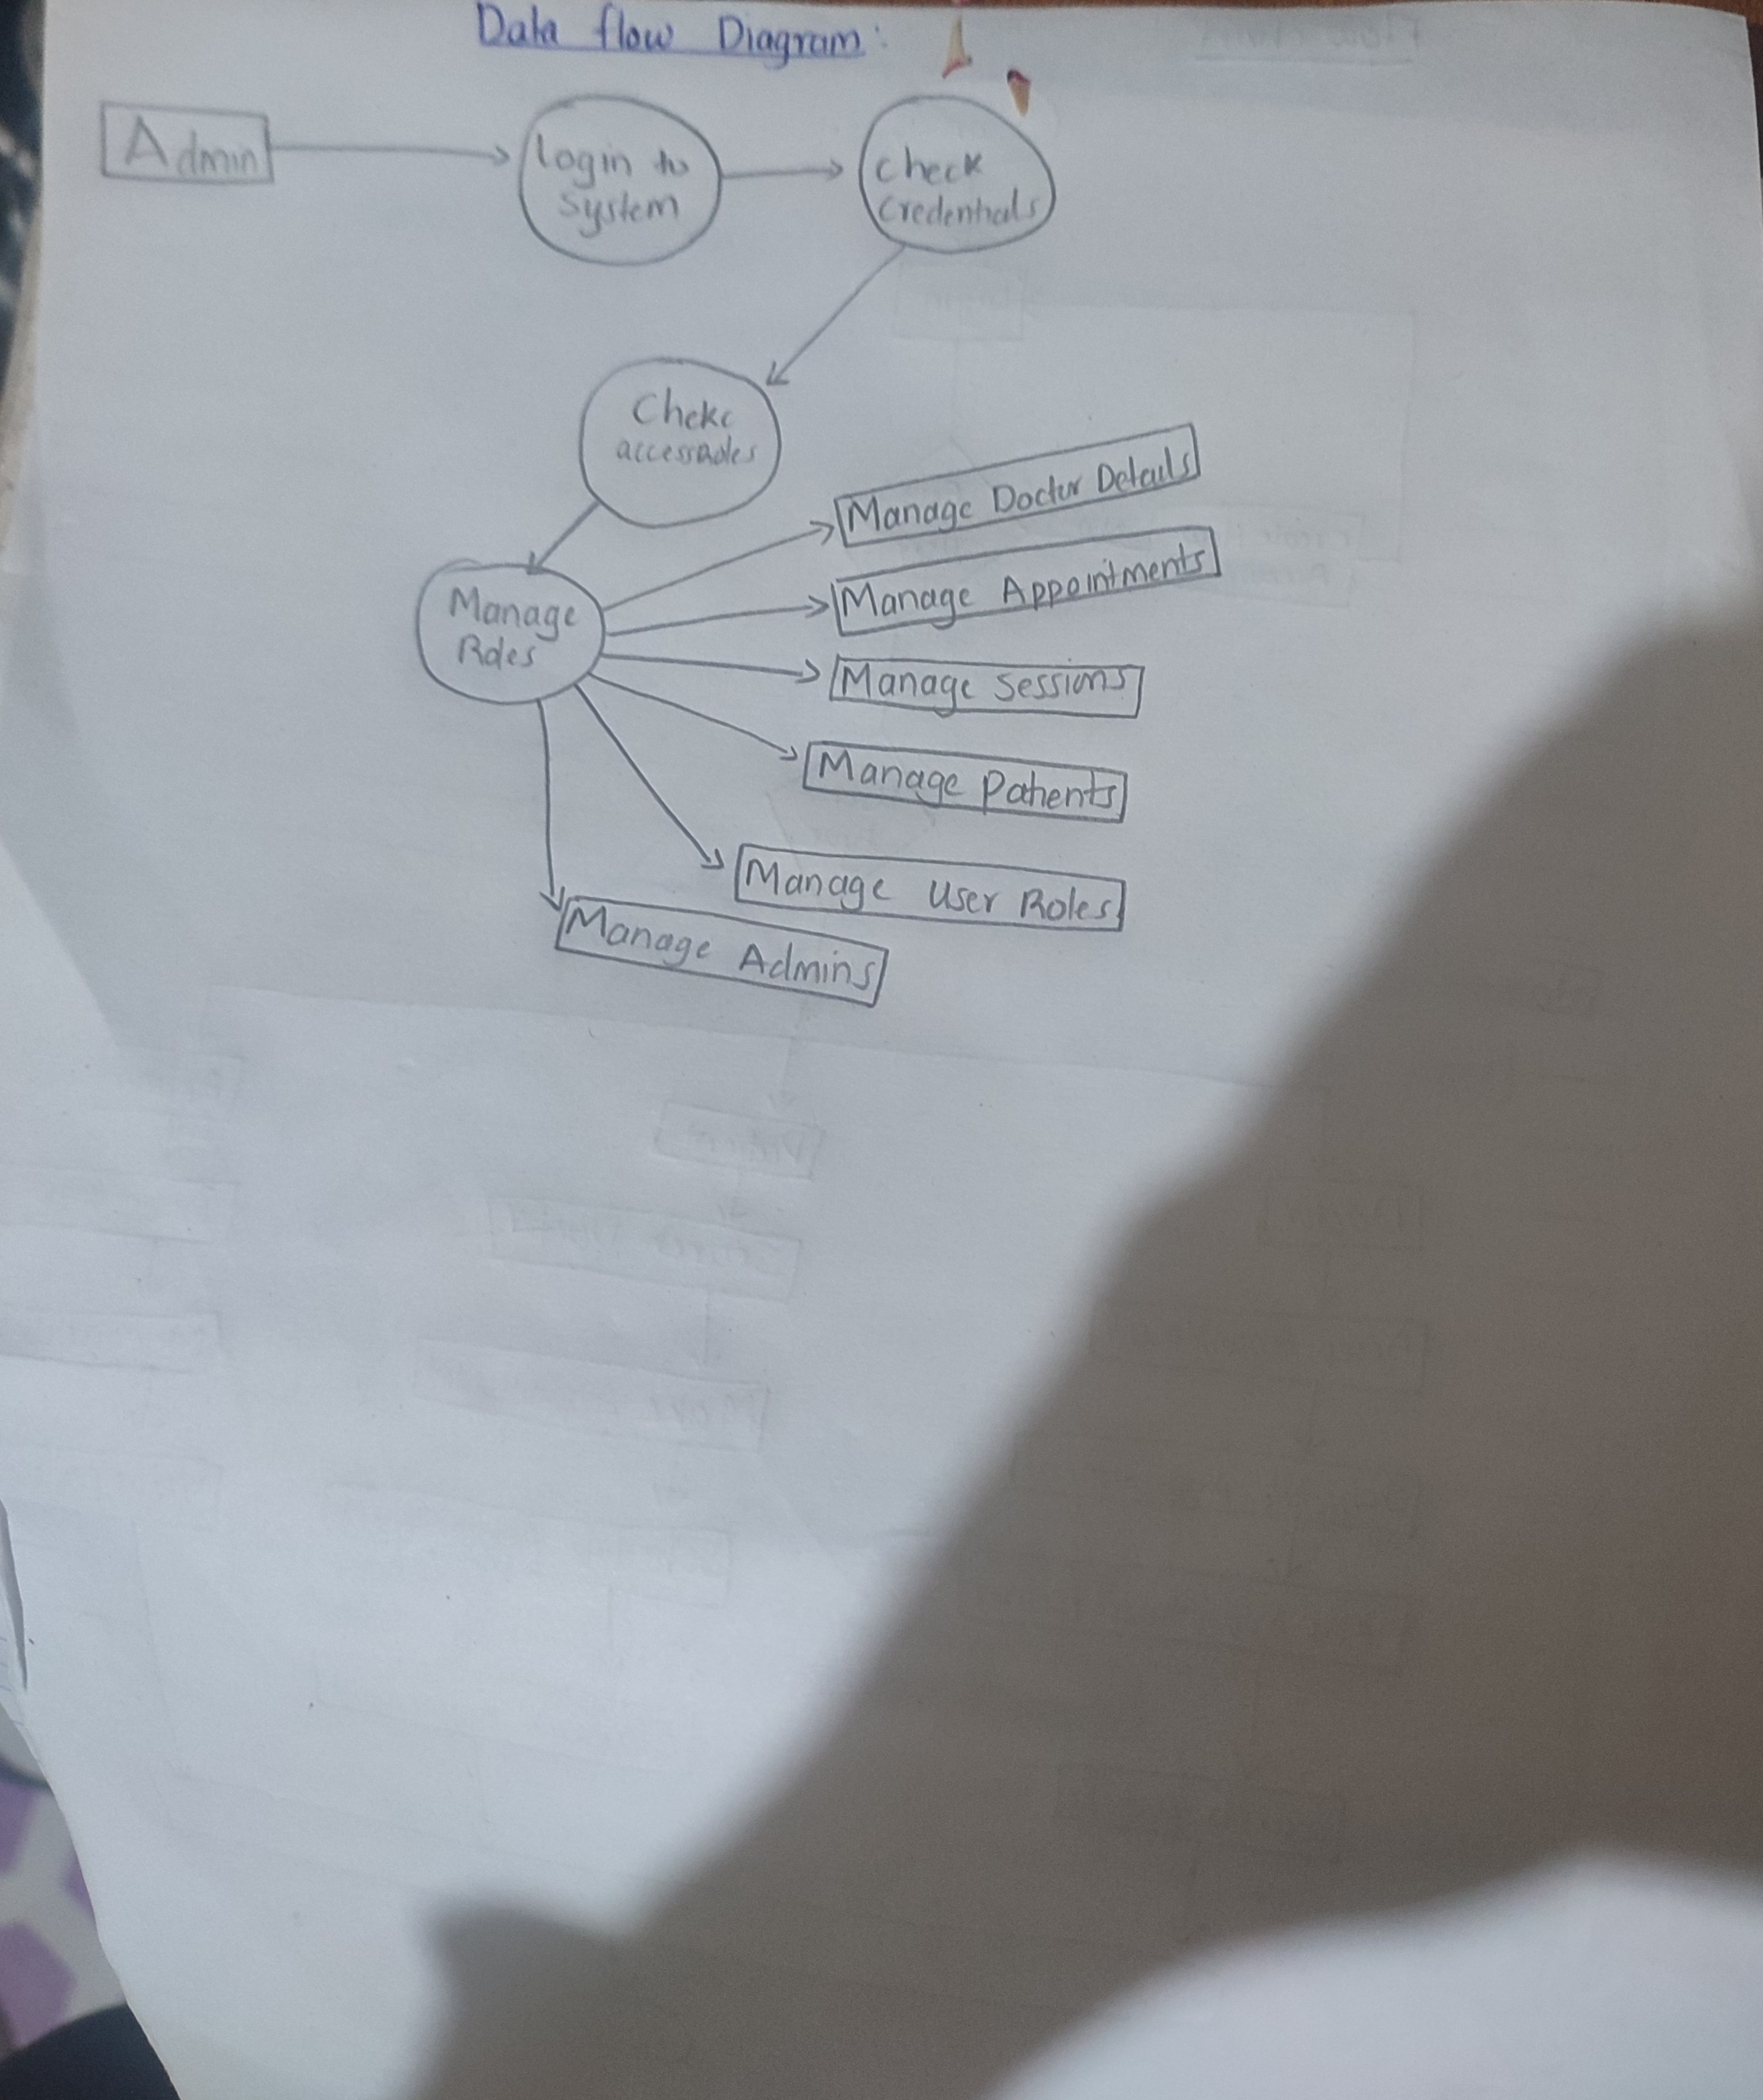 Data flow Diagram:
Admin
Login to
System
check
credentials
Chekc
accessroles
Manage
Roles
Manage Doctor Details
Manage Appointments
Manage Sessions
Manage Patients
Manage User Roles
Manage Admins